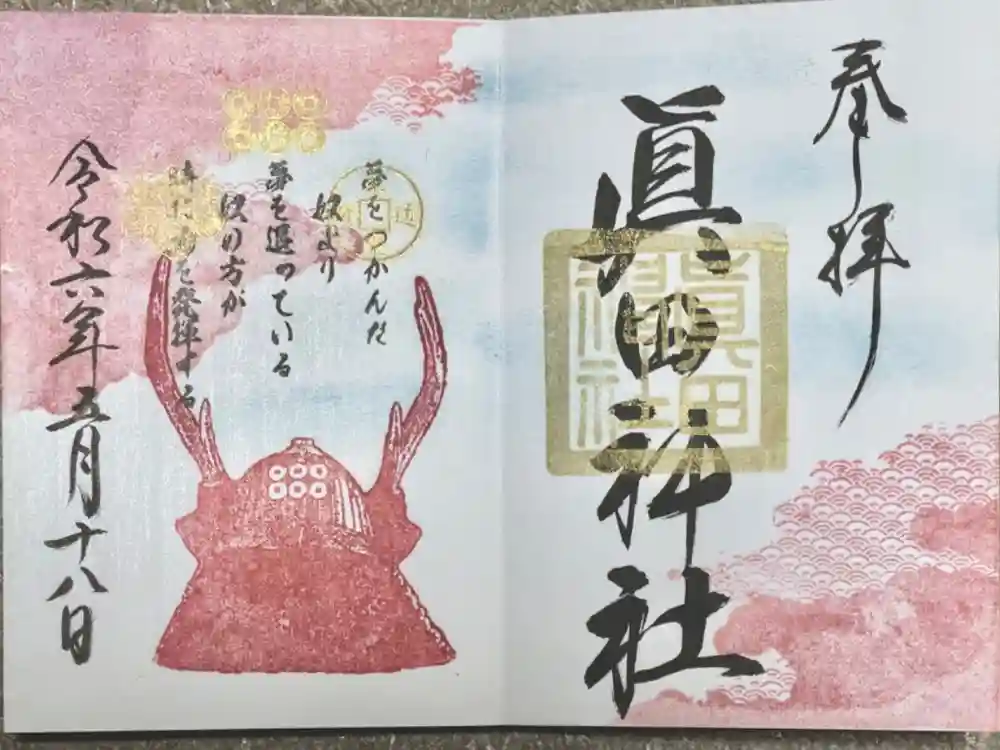 奉拝
眞田神社
眞田
神社
夢をつかんだ
奴より
夢を追っている
奴の方が
力を発揮する
令和六年五月十八日